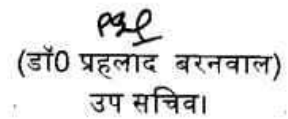 (डॉ0 प्रहलाद बरनवाल)
उप सचिव।